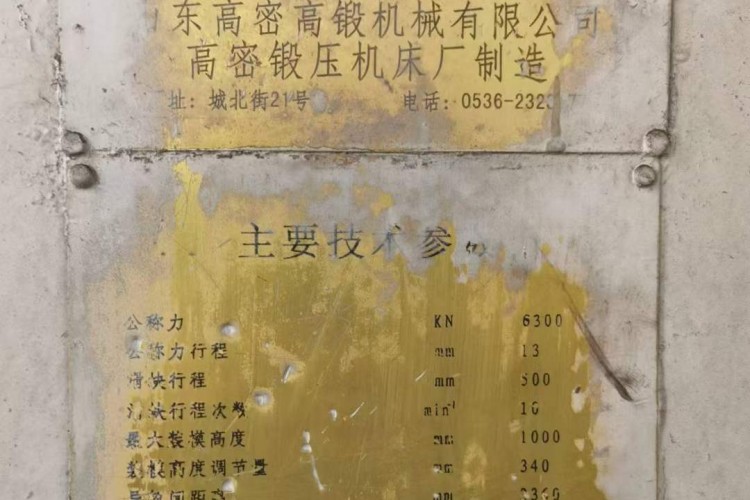 东高密高锻机械有限公司
高密锻压机床厂制造
址：城北街21号 电话：0536-232
主要技术参
公称力 KN 6300
公称力行程 mm 13
滑块行程 mm 500
滑块行程次数 min⁻¹ 10
最大装模高度 mm 1000
装模高度调节量 mm 340